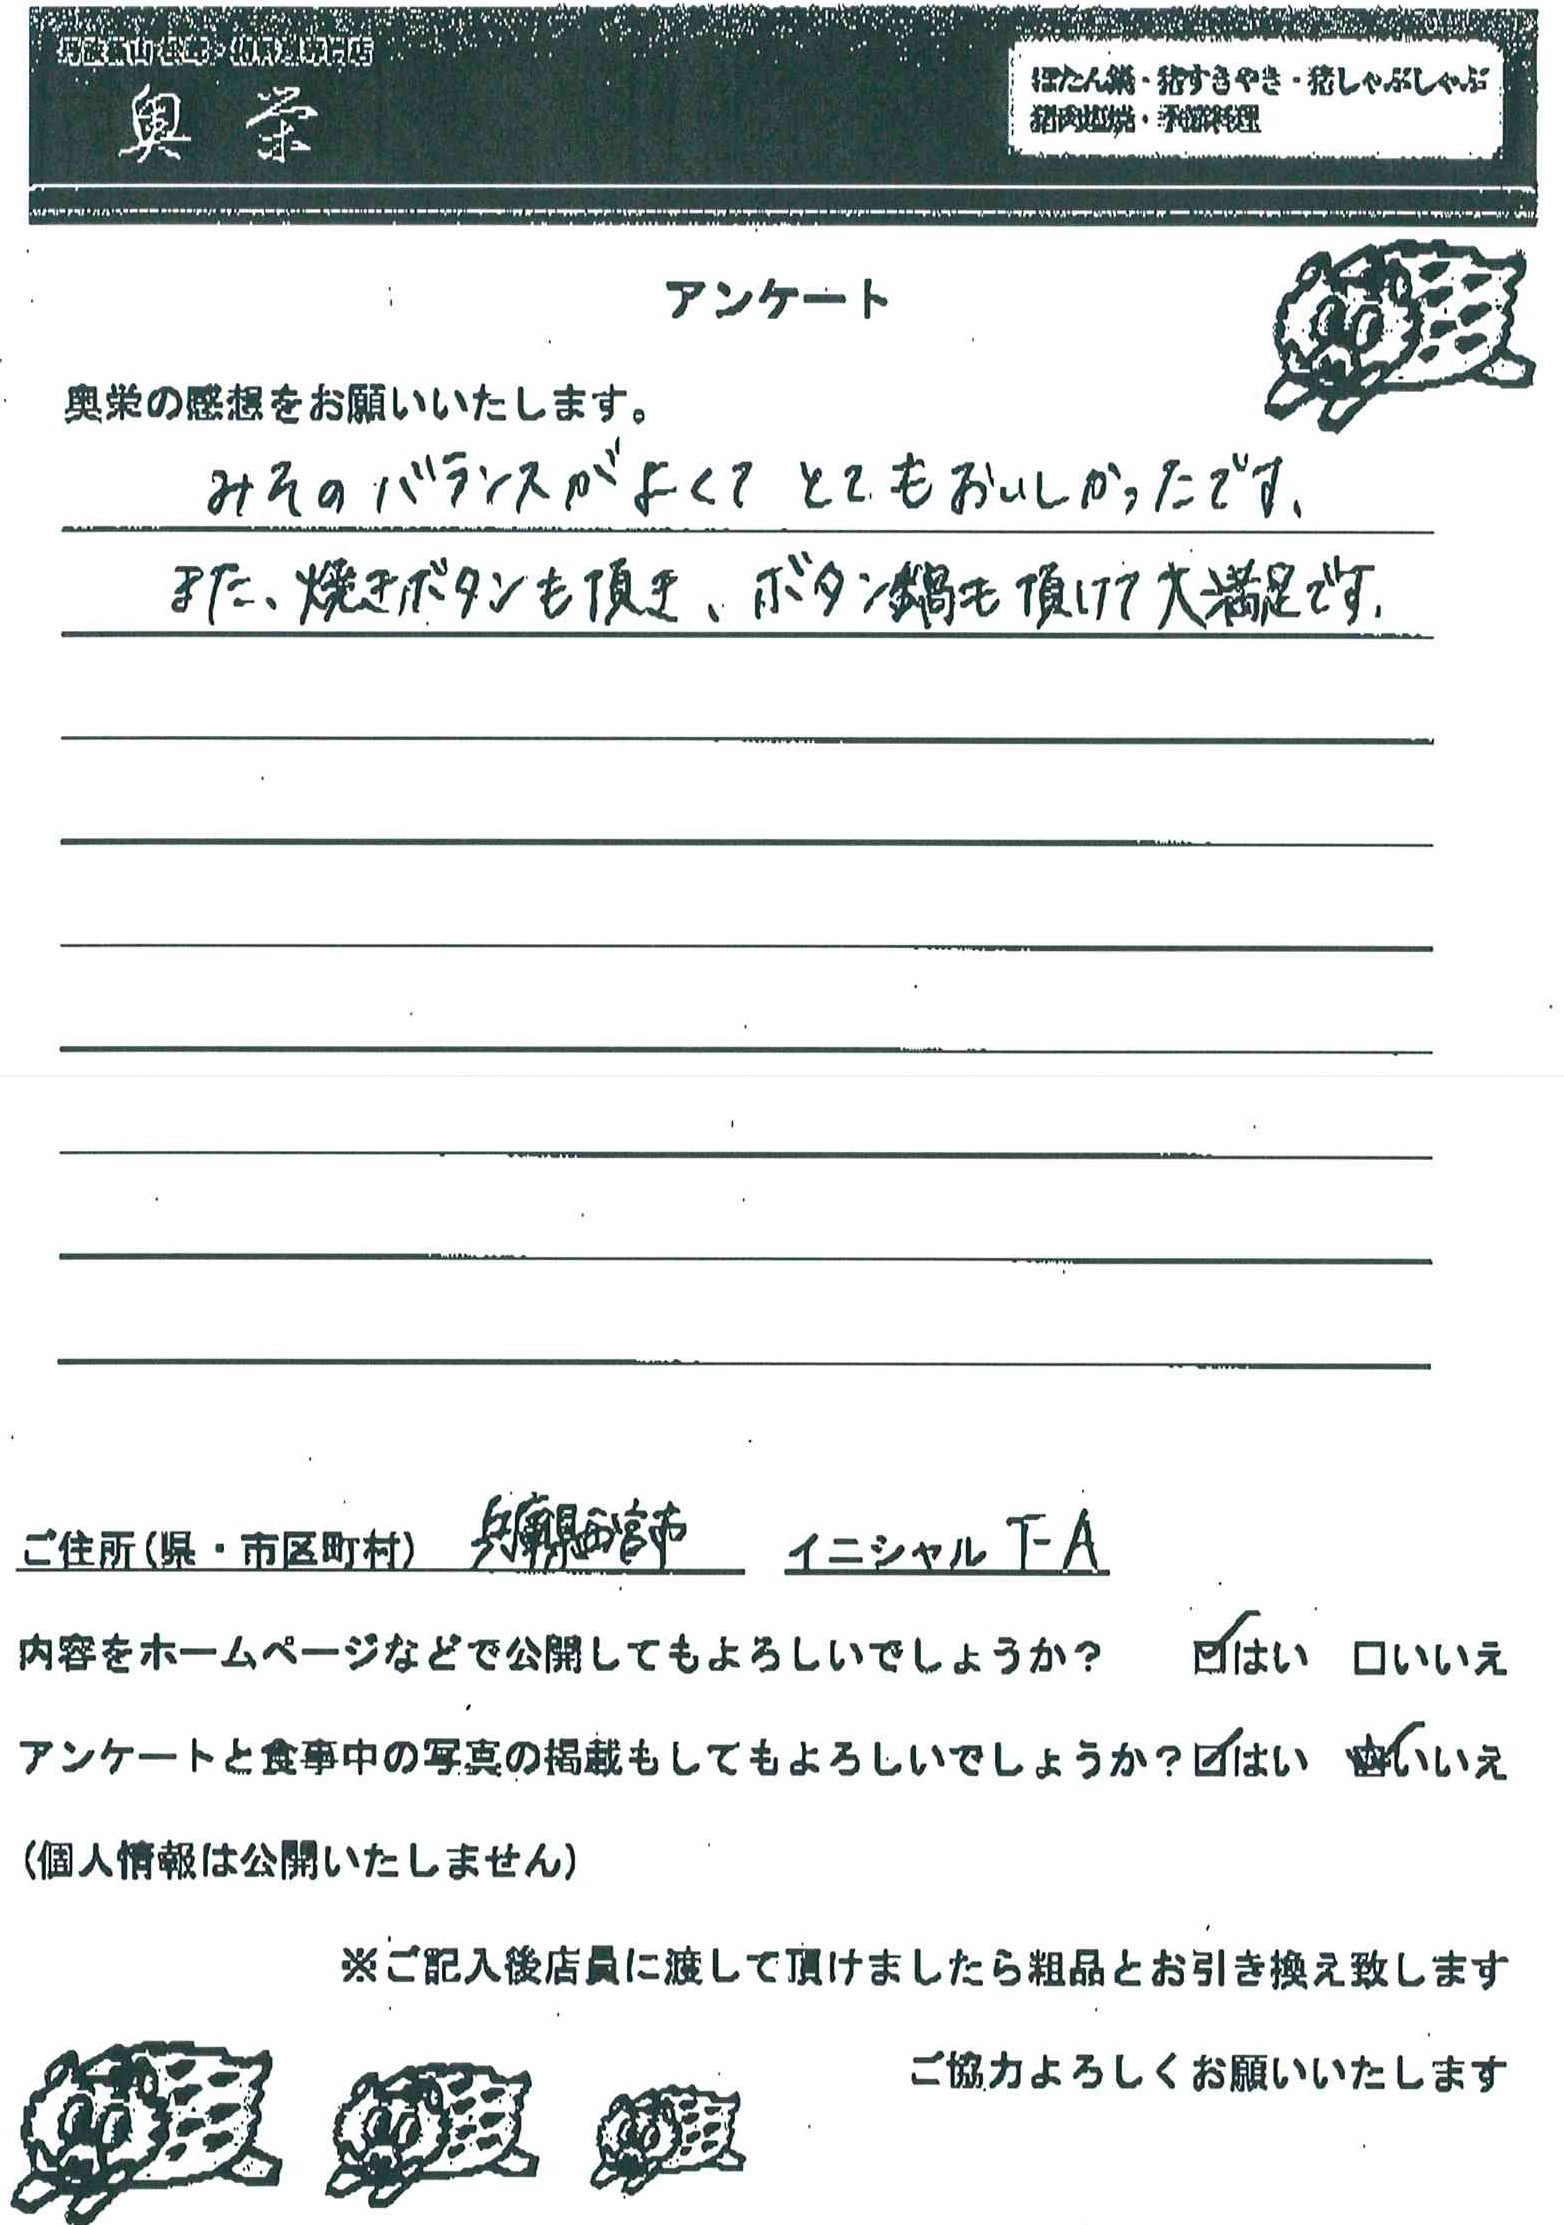 奥栄
ぼたん鍋・猪すきやき・猪しゃぶしゃぶ
猪肉塩焼・季節料理
アンケート
奥栄の感想をお願いいたします。
みそのバランスがよくて とてもおいしかったです、
また、焼きボタンも頂き、ボタン鍋も頂けて大満足です。
ご住所(県・市区町村) 兵庫県西宮市 イニシャル T-A
内容をホームページなどで公開してもよろしいでしょうか? ☑はい □いいえ
アンケートと食事中の写真の掲載もしてもよろしいでしょうか?☑はい ☑いいえ
(個人情報は公開いたしません)
※ご記入後店員に渡して頂けましたら粗品とお引き換え致します
ご協力よろしくお願いいたします